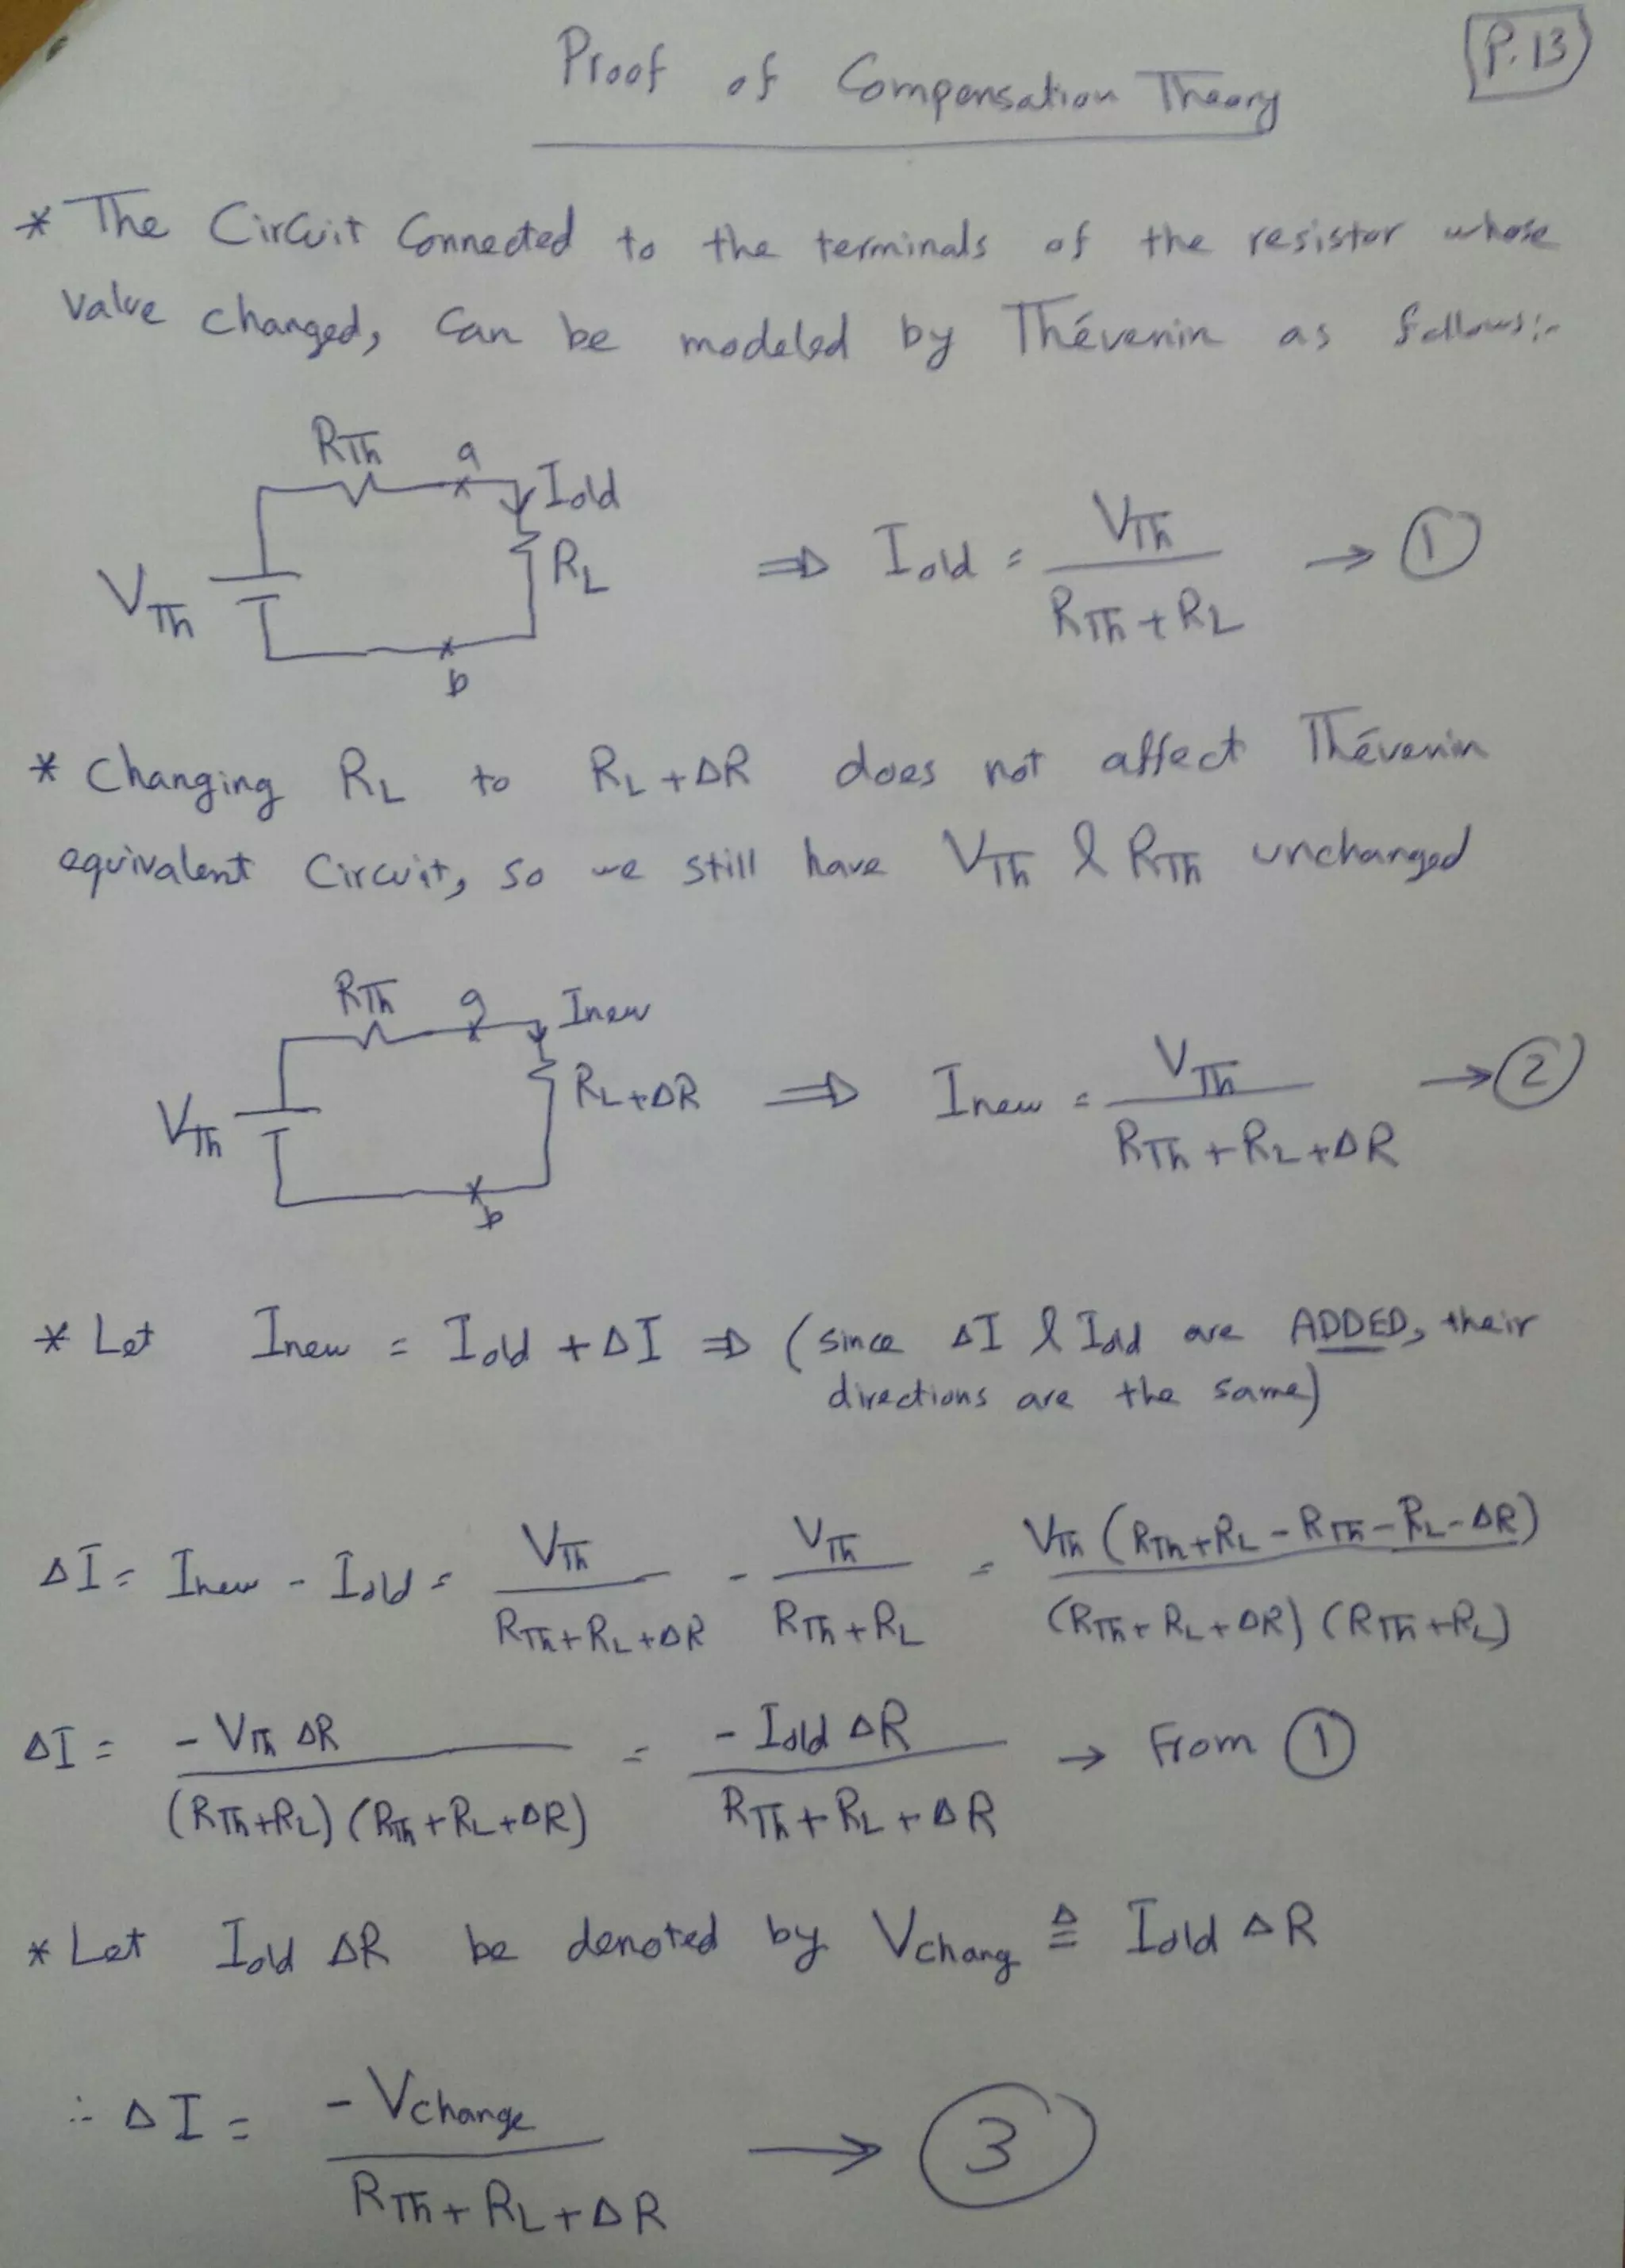 P.13
Proof of Compensation Theory
* The Circuit Connected to the terminals of the resistor whose
value changed, can be modeled by Thévenin as follows:-
RTh a Iold
VTh RL ⇒ Iold = VTh / (RTh + RL) → ①
b
* Changing RL to RL + ΔR does not affect Thévenin
equivalent Circuit, so we still have VTh & RTh unchanged
RTh a Inew
VTh RL+ΔR ⇒ Inew = VTh / (RTh + RL + ΔR) → ②
b
* Let Inew = Iold + ΔI ⇒ (since ΔI & Iold are ADDED, their
directions are the same)
ΔI = Inew - Iold = VTh / (RTh + RL + ΔR) - VTh / (RTh + RL) = VTh (RTh + RL - RTh - RL - ΔR) / (RTh + RL + ΔR) (RTh + RL)
ΔI = - VTh ΔR / (RTh + RL) (RTh + RL + ΔR) = - Iold ΔR / (RTh + RL + ΔR) → From ①
* Let Iold ΔR be denoted by Vchang ≜ Iold ΔR
∴ ΔI = - Vchange / (RTh + RL + ΔR) → ③